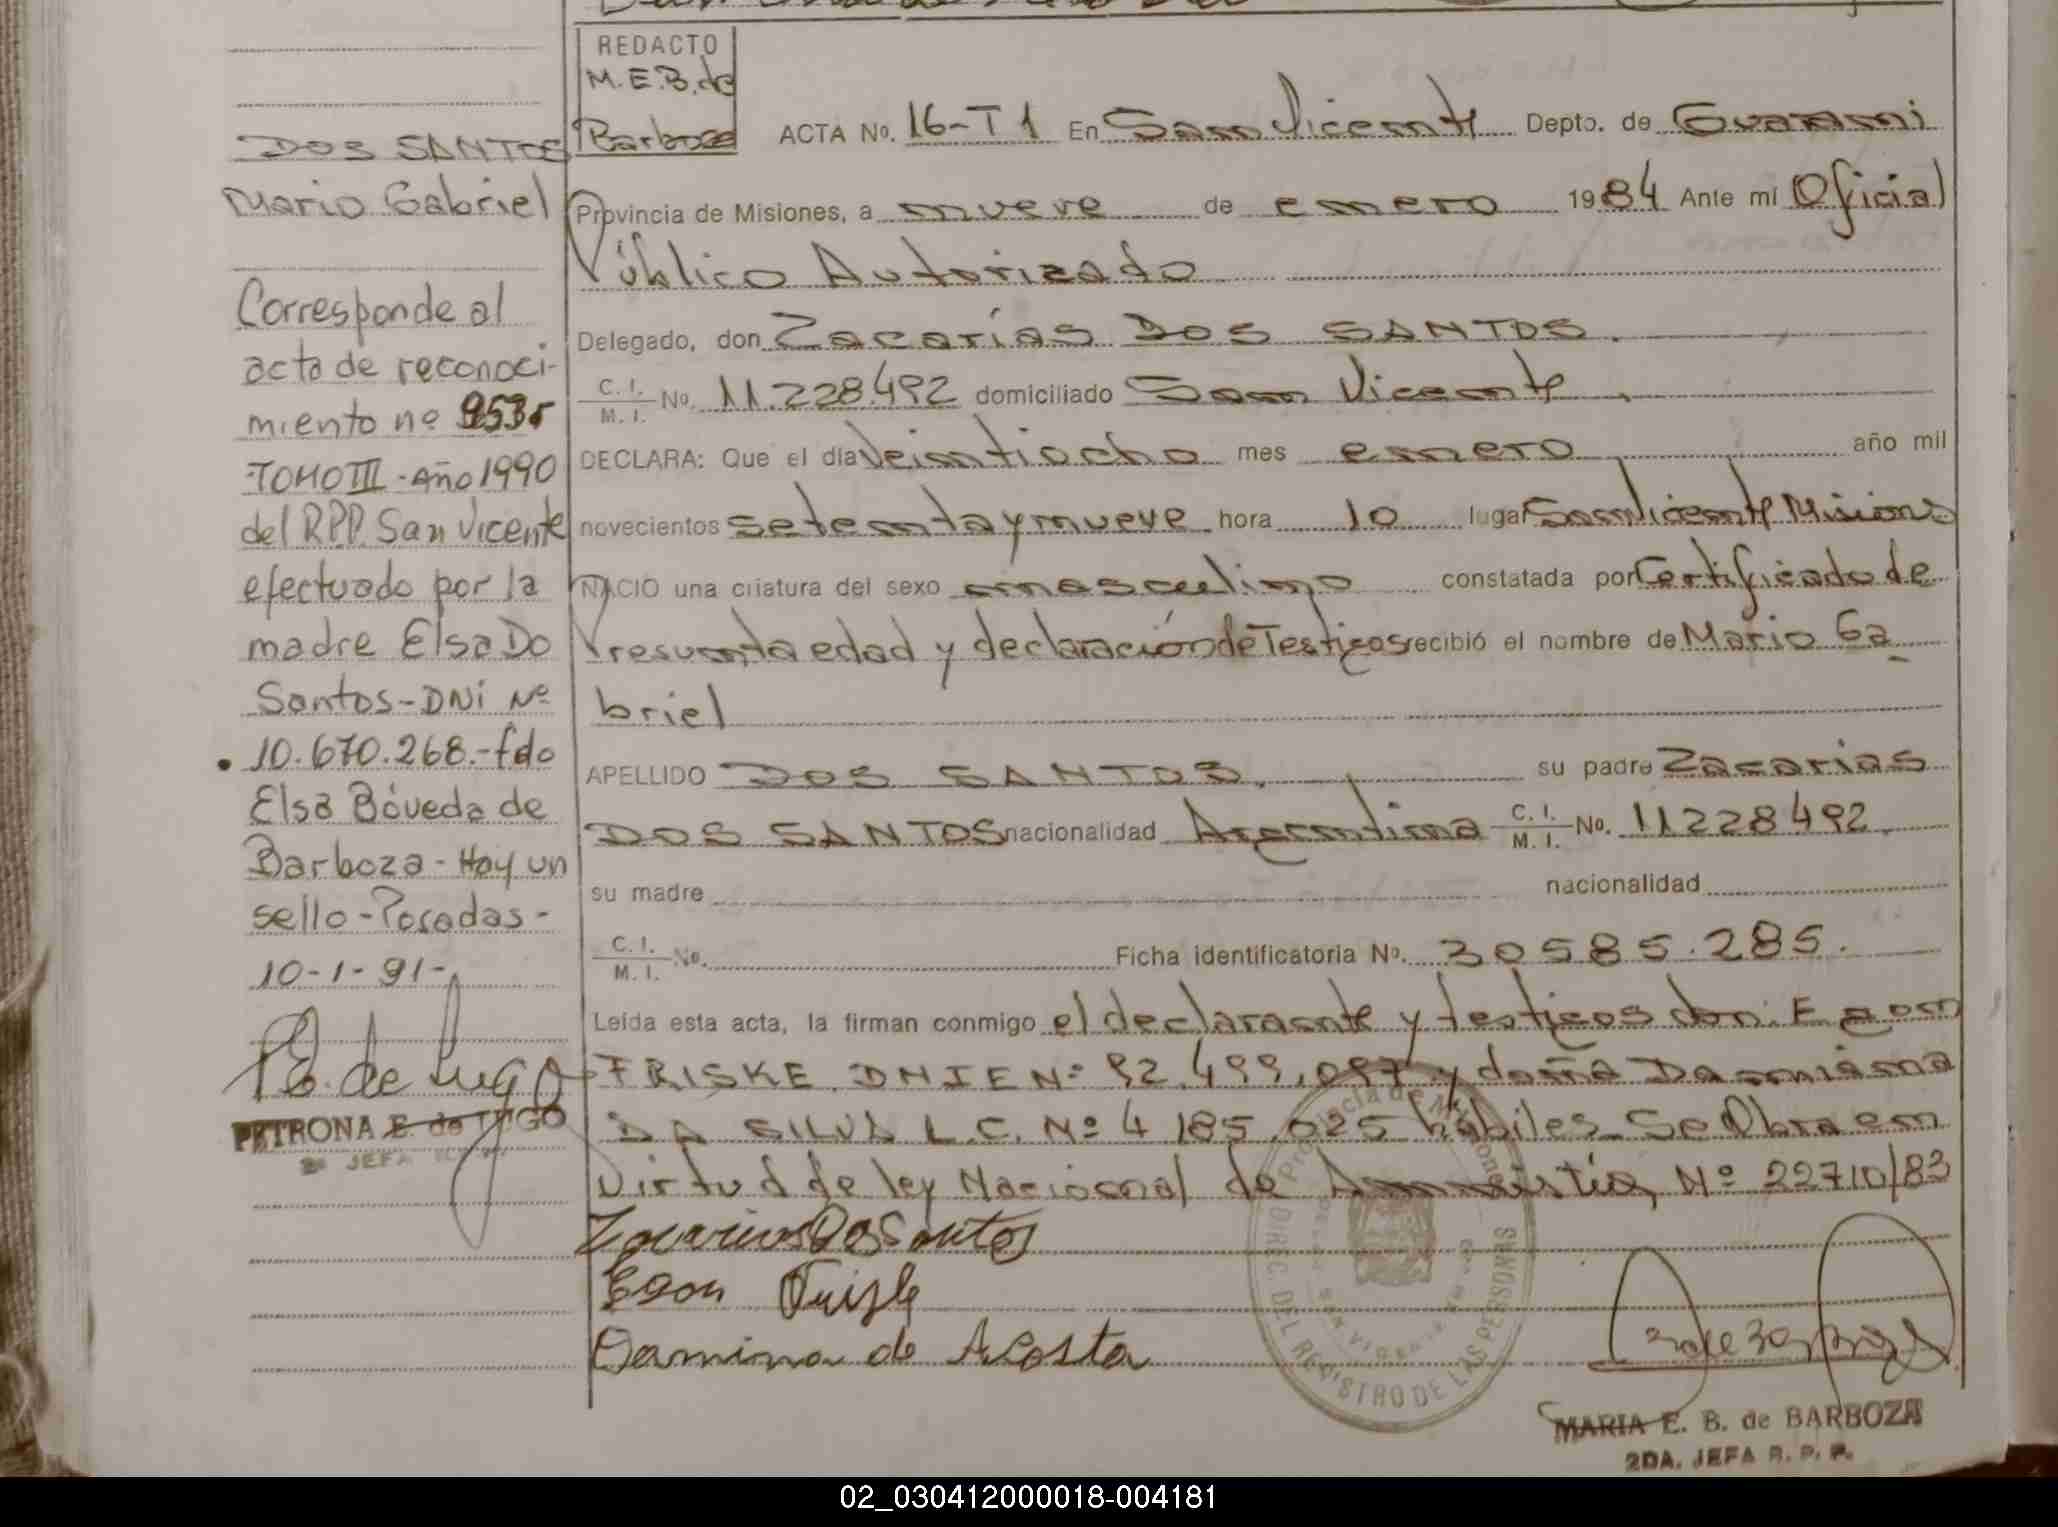 DOS SANTOS
Mario Gabriel
Corresponde al
acta de reconoci-
miento nº
TOMO III - Año 1990
del RPP. San Vicente
efectuado por la
madre Elsa Do
Santos - DNI Nº
10.670.268.- fdo
Elsa Bóveda de
Barboza - Hay un
sello - Posadas -
10-1-91-
P E. de Lugo
PETRONA E. de LUGO
2ª JEFA
REDACTO
M.E.B. de
Barboza
ACTA No. 16-T1 En San Vicente Depto. de Guarani
Provincia de Misiones, a nueve de enero 1984 Ante mi Oficial
Público Autorizado
Delegado, don Zacarías DOS SANTOS.
C. I. / M. I. No. 11.228.492 domiciliado San Vicente
DECLARA: Que el día Veintiocho mes enero año mil
novecientos setenta y nueve hora 10 lugar San Vicente Misiones
NACIO una criatura del sexo masculino constatada por Certificado de
Presunta edad y declaración de Testigos recibió el nombre de Mario Ga
briel
APELLIDO DOS SANTOS. su padre Zacarias
DOS SANTOS nacionalidad Argentina C. I. / M. I. No. 11228492.
su madre nacionalidad
C. I. / M. I. No. Ficha identificatoria No. 30585.285.
Leída esta acta, la firman conmigo el declarante y testigos don: Egon
FRISKE DNIE Nº 92.499.097 y doña Damiana
DA SILVA L.C. Nº 4 185.025 hábiles Se Obra en
Virtud de ley Nacional de Amnistía, Nº 22710/83
Zacarias Dos Santos
Egon Friske
Damina de Acosta
Provincia de Misiones
DIREC. DEL REGISTRO DE LAS PERSONAS
SAN VICENTE
MARIA E. B. de BARBOZA
2DA. JEFA R. P. P.
02_030412000018-004181